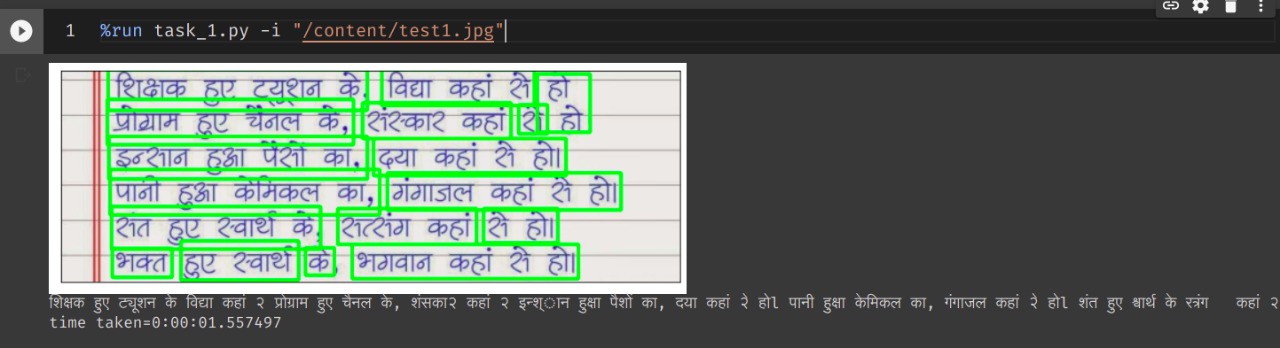 1 %run task_1.py -i "/content/test1.jpg"
शिक्षक हुए ट्यूशन के, विद्या कहां से हो
प्रोग्राम हुए चैनल के, संस्कार कहां से हो
इन्सान हुआ पैसों का, दया कहां से हो।
पानी हुआ केमिकल का, गंगाजल कहां से हो।
संत हुए स्वार्थ के, सत्संग कहां से हो।
भक्त हुए स्वार्थ के, भगवान कहां से हो।
शिक्षक हुए ट्यूशन के विद्या कहां २ प्रोग्राम हुए चैनल के, शंसका२ कहां २ इन्श्ान हुक्षा पैशों का, दया कहां २े होl पानी हुक्षा केमिकल का, गंगाजल कहां २े होl शंत हुए श्वार्थ के स्त्रंग कहां २
time taken=0:00:01.557497